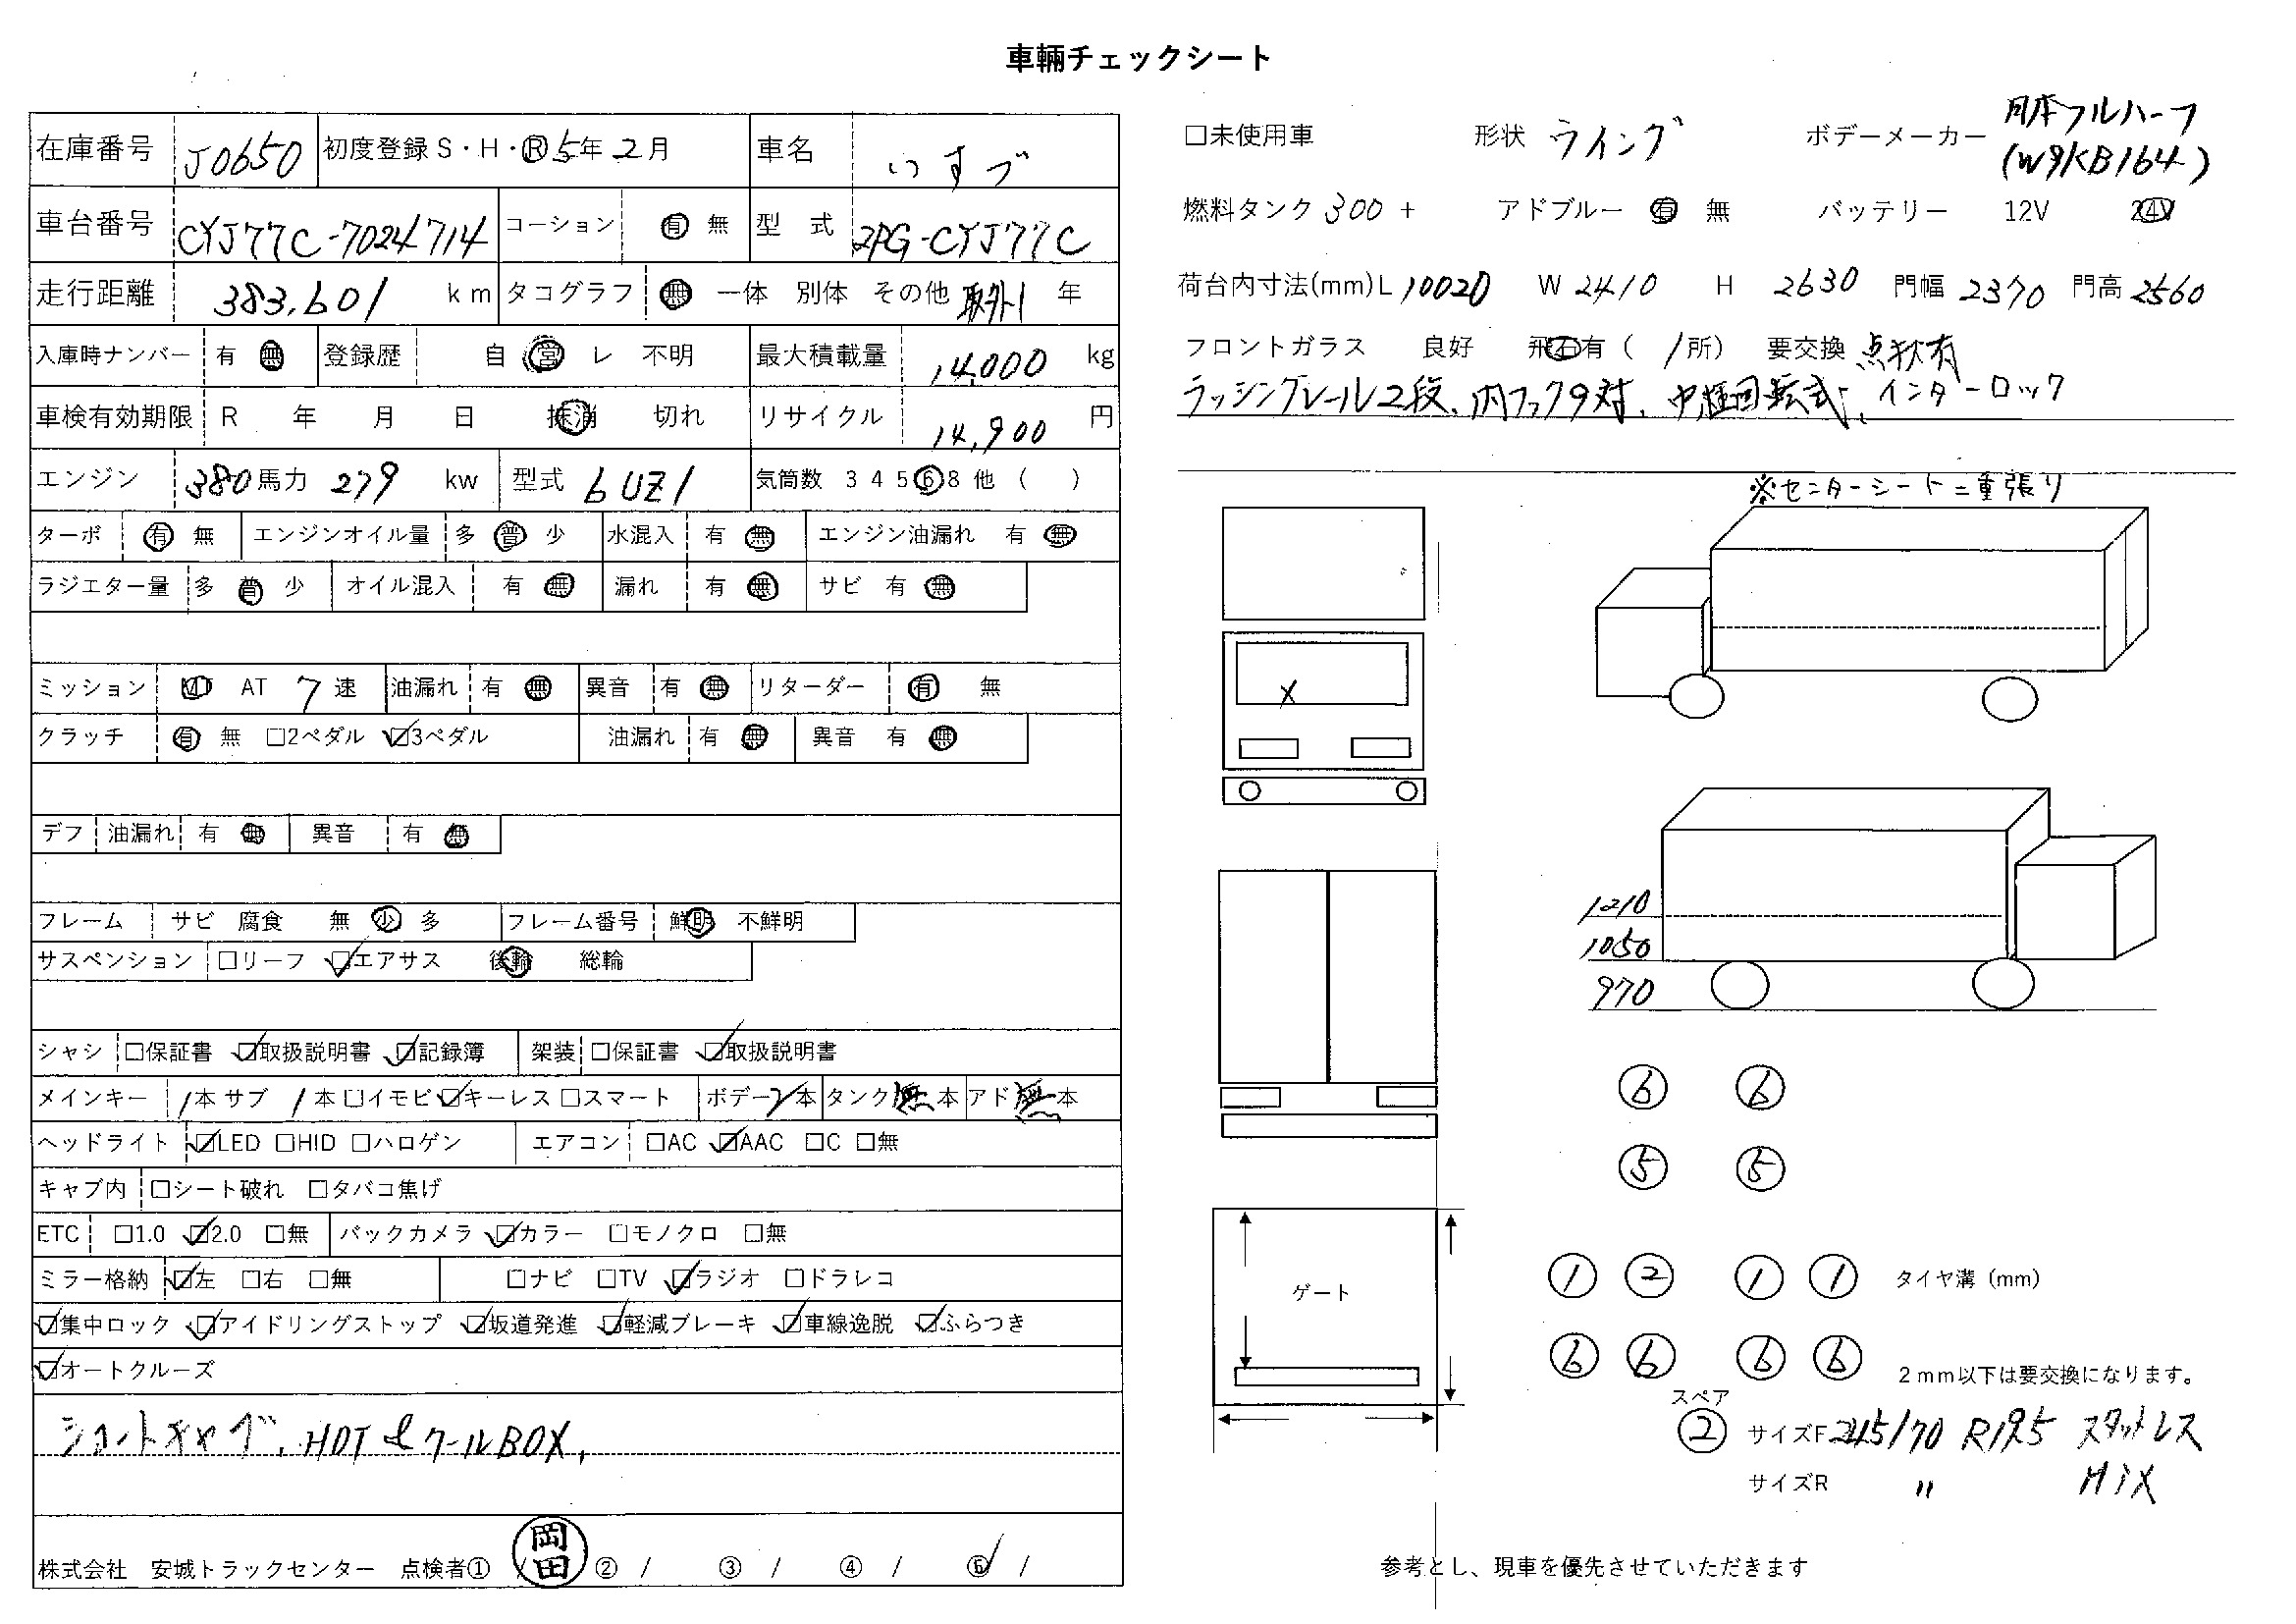 車輛チェックシート
在庫番号 J0650 初度登録 S・H・Ⓡ 5年 2月 車名 いすゞ
車台番号 CYJ77C-7024714 コーション 有 無 型 式 2PG-CYJ77C
走行距離 383,601 km タコグラフ 無 一体 別体 その他 取外し 年
入庫時ナンバー 有 無 登録歴 自 営 レ 不明 最大積載量 14,000 kg
車検有効期限 R 年 月 日 抹消 切れ リサイクル 14,900 円
エンジン 380馬力 279 kw 型式 6UZ1 気筒数 3 4 5 6 8 他 ( )
ターボ 有 無 エンジンオイル量 多 普 少 水混入 有 無 エンジン油漏れ 有 無
ラジエター量 多 普 少 オイル混入 有 無 漏れ 有 無 サビ 有 無
ミッション MT AT 7 速 油漏れ 有 無 異音 有 無 リターダー 有 無
クラッチ 有 無 □2ペダル ☑3ペダル 油漏れ 有 無 異音 有 無
デフ 油漏れ 有 無 異音 有 無
フレーム サビ 腐食 無 少 多 フレーム番号 鮮明 不鮮明
サスペンション □リーフ ☑エアサス 後輪 総輪
シャシ □保証書 ☑取扱説明書 ☑記録簿 架装 □保証書 ☑取扱説明書
メインキー 1本 サブ 1本 □イモビ ☑キーレス □スマート ボデー2本 タンク無本 アド無本
ヘッドライト ☑LED □HID □ハロゲン エアコン □AC ☑AAC □C □無
キャブ内 □シート破れ □タバコ焦げ
ETC □1.0 ☑2.0 □無 バックカメラ ☑カラー □モノクロ □無
ミラー格納 ☑左 □右 □無 □ナビ □TV ☑ラジオ □ドラレコ
☑集中ロック ☑アイドリングストップ ☑坂道発進 ☑軽減ブレーキ ☑車線逸脱 ☑ふらつき
☑オートクルーズ
ショートキャブ、HOT&クールBOX,
株式会社 安城トラックセンター 点検者① / 岡田 ② / ③ / ④ / ⑤ /
□未使用車 形状 ウイング ボデーメーカー 日本フルハーフ
(W9KB164)
燃料タンク 300 + アドブルー 有 無 バッテリー 12V 24V
荷台内寸法(mm)L 10020 W 2410 H 2630 門幅 2370 門高 2560
フロントガラス 良好 飛石有 ( 1所) 要交換 点状有
ラッシングレール2段、内フック9対、中柱回転式、インターロック
※センターシート二重張り
X
1210
1050
970
⑥ ⑥
⑤ ⑤
① ② ① ① タイヤ溝 (mm)
⑥ ⑥ ⑥ ⑥ 2mm以下は要交換になります。
ゲート
スペア
② サイズF 245/70 R19.5 スタットレス
サイズR 〃 MIX
参考とし、現車を優先させていただきます